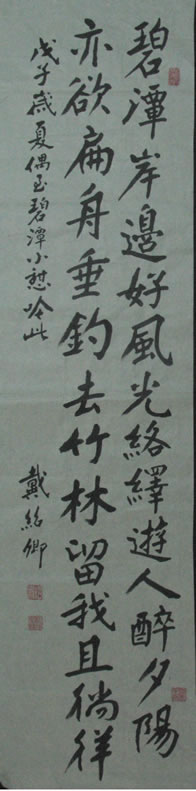 碧潭岸邊好風光絡繹遊人醉夕陽
亦欲扁舟垂釣去竹林留我且徜徉
戊子歲夏偶至碧潭小憩吟此
戴紹卿